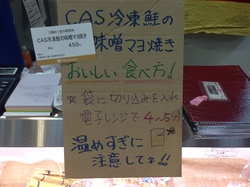 CAS冷凍鮭の
味噌マヨ焼き
おいしい食べ方!
※袋に切り込みを入れ
電子レンジで4〜5分!
温めすぎに
注意してネ!!
CAS冷凍鮭の味噌マヨ焼き
450